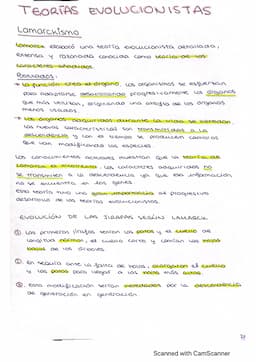 TEORÍAS EVOLUCIONISTAS
Lamarckismo
Lamarck elaboró una teoría evolucionista detallada,
extensa y razonada conocida como teoría de los
caracteres adquiridos.
Resumidos:
• La función crea el órgano. Los organismos se esfuerzan
para adaptarse desarrollando progresivamente los órganos
que más utilizan, originando una atrofia de los órganos
menos usados.
• Los órganos adquiridos durante la vida se heredan.
Las nuevas características son transmitidas a la
descendencia y con el tiempo se producen cambios
que van modificando las especies.
Los conocimientos actuales muestran que la teoría de
Lamarck es errónea. Los caracteres adquiridos no
se transmiten a la descendencia ya que esa información
no se encuentra en los genes.
Esta teoría tuvo una gran importancia al progresivo
desarrollo de las teorías evolucionistas.
EVOLUCIÓN DE LAS JIRAFAS SEGÚN LAMARCK.
① Las primeras jirafas tenían las patas y el cuello de
longitud normal, el cuello corto y comían las hojas
bajas de los árboles.
② En sequía ante la falta de hojas, alargaron el cuello
y las patas para llegar a las hojas más altas.
③ Esas modificaciones serían heredadas por la descendencia
de generación en generación.
Scanned with CamScanner